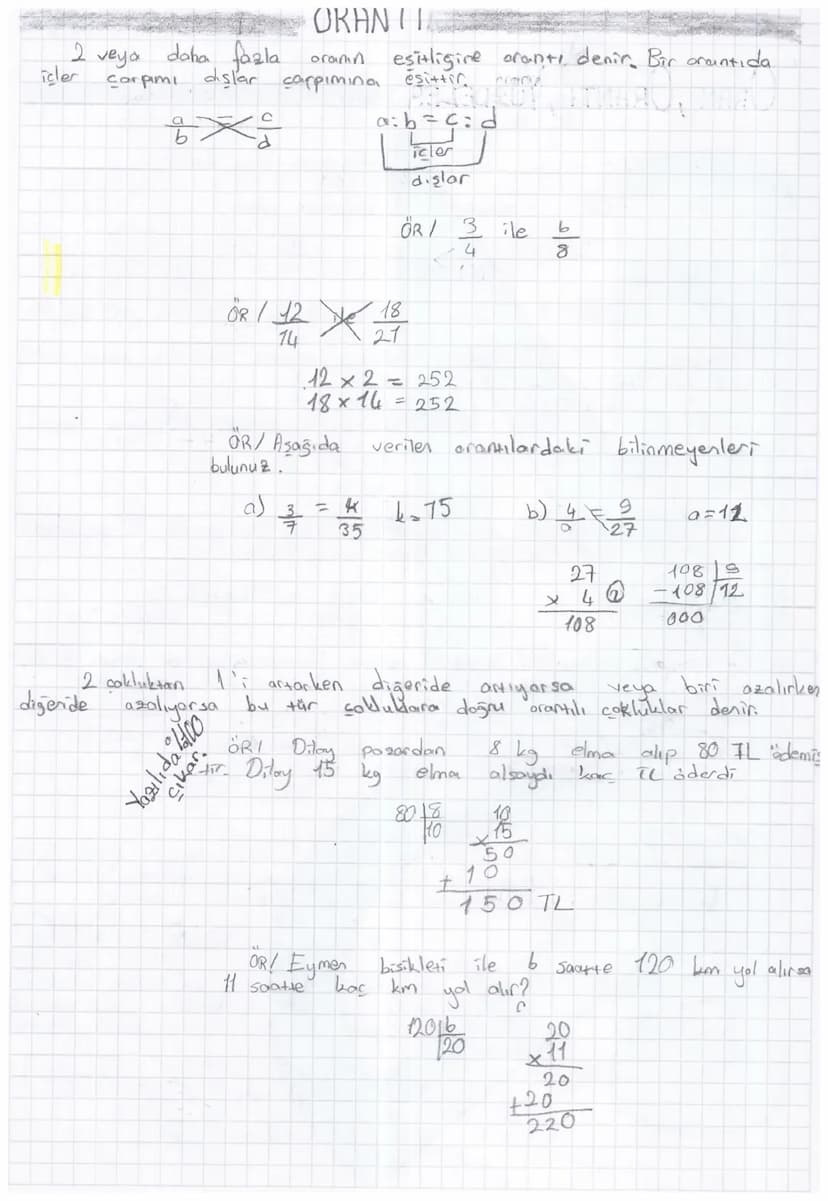 ORANTI
2 veya daha fazla oranın eşitliğine orantı denir. Bir orantıda
içler çarpımı dışlar çarpımına eşittir.
a/b = c/d a:b = c:d
içler
dışlar
ÖR/ 3/4 ile 6/8
ÖR/ 12/14 ile 18/21
12 x 2 = 252
18 x 14 = 252
ÖR/ Aşağıda verilen orantılardaki bilinmeyenleri
bulunuz.
a) 3/7 = k/35 k=15 b) 4/a = 9/27 a=12
27 108 | 9
x 4 a -108 | 12
108 000
2 çokluktan 1'i artarken diğeride artıyorsa veya biri azalırken
diğeride azalıyorsa bu tür çokluklara doğru orantılı çokluklar denir.
Yazılıda %100
çıkar.
ÖR/ Dilay pazardan 8 kg elma alıp 80 TL ödemiş
tir. Dilay 15 kg elma alsaydı kaç TL öderdi
80 | 8 10
10 x 15
50
+ 10
150 TL
ÖR/ Eymen bisikleti ile 6 saatte 120 km yol alırsa
11 saatte kaç km yol alır?
120 | 6 20
20 x 11
20
+20
220